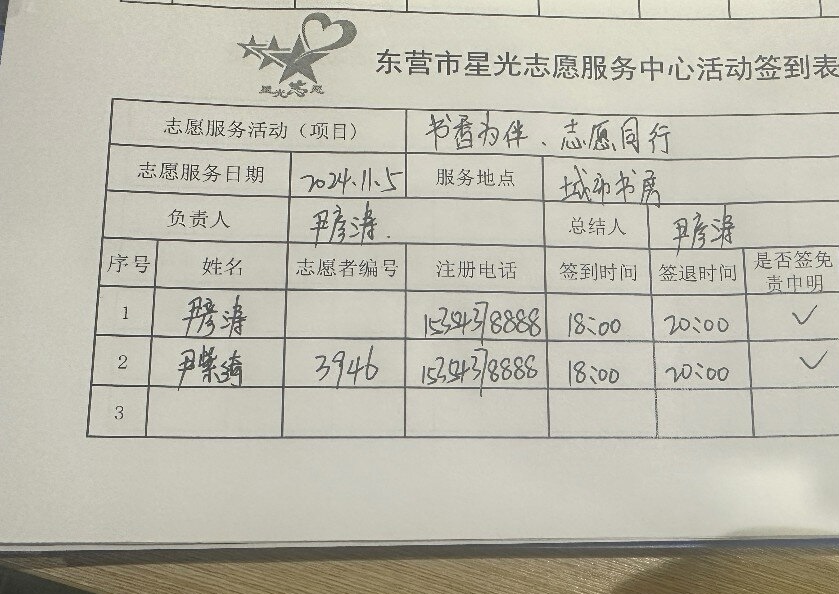 星光志愿
东营市星光志愿服务中心活动签到表
志愿服务活动（项目） 书香为伴、志愿同行
志愿服务日期 2024.11.5 服务地点 城市书房
负责人 尹彦涛. 总结人 尹彦涛
序号 姓名 志愿者编号 注册电话 签到时间 签退时间 是否签免责申明
1 尹彦涛 15354378888 18:00 20:00 ✓
2 尹紫绮 3946 15354378888 18:00 20:00 ✓
3